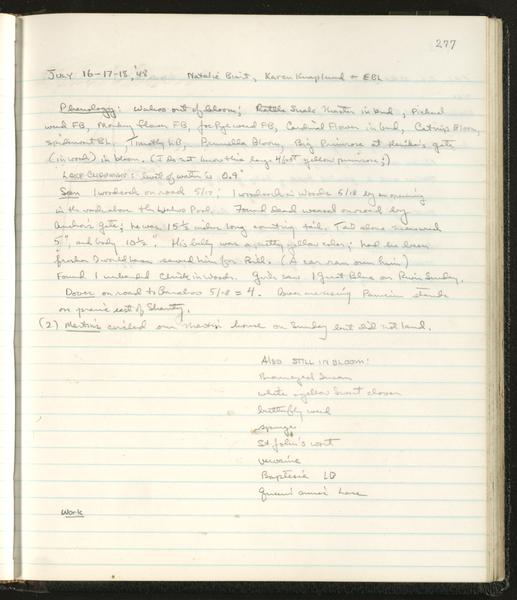 277
July 16-17-18, '48 Natalie Karen Knaplund & EBL
Phenology: Wahoo out of bloom; Rattle Snake Master in bud, Pickerel
weed FB, Monkey flower FB, Joe Pye weed FB, Cardinal Flower in bud, Catnip Bloom,
spearmint BL, Timothy LB, Prunella Bloom, Big Primrose at gate
(in woods) in bloom. (I do not know this large 4 foot yellow primrose;)
Lake Chapman: level of water is 0.9"
Seen 1 woodcock on road 5/17; 1 woodcock in woods 5/18 by an opening
in the woods above the Wahoo Pool. Found dead weasel on road by
Anchor's Gate; he was 15½ inches long counting tail. Tail alone measured
5", and body 10½". His belly was a pretty yellow color; had he been
fresher I would have saved him for Bill. (A car ran over him)
Found 1 unbanded Chick in woods. Girls saw 1 Great Blue on River Sunday.
Doves on road to Baraboo 5/18 = 4. Doves are using Panicum stands
on prairie east of Shanty.
(2) Martins circled our Martin house on Sunday but did not land.
Also still in bloom:
Browneyed Susan
white & yellow Sweet clover
butterfly weed
spurge
St John's wort
vervaine
Baptesia LB
Queen Anne's Lace
Work